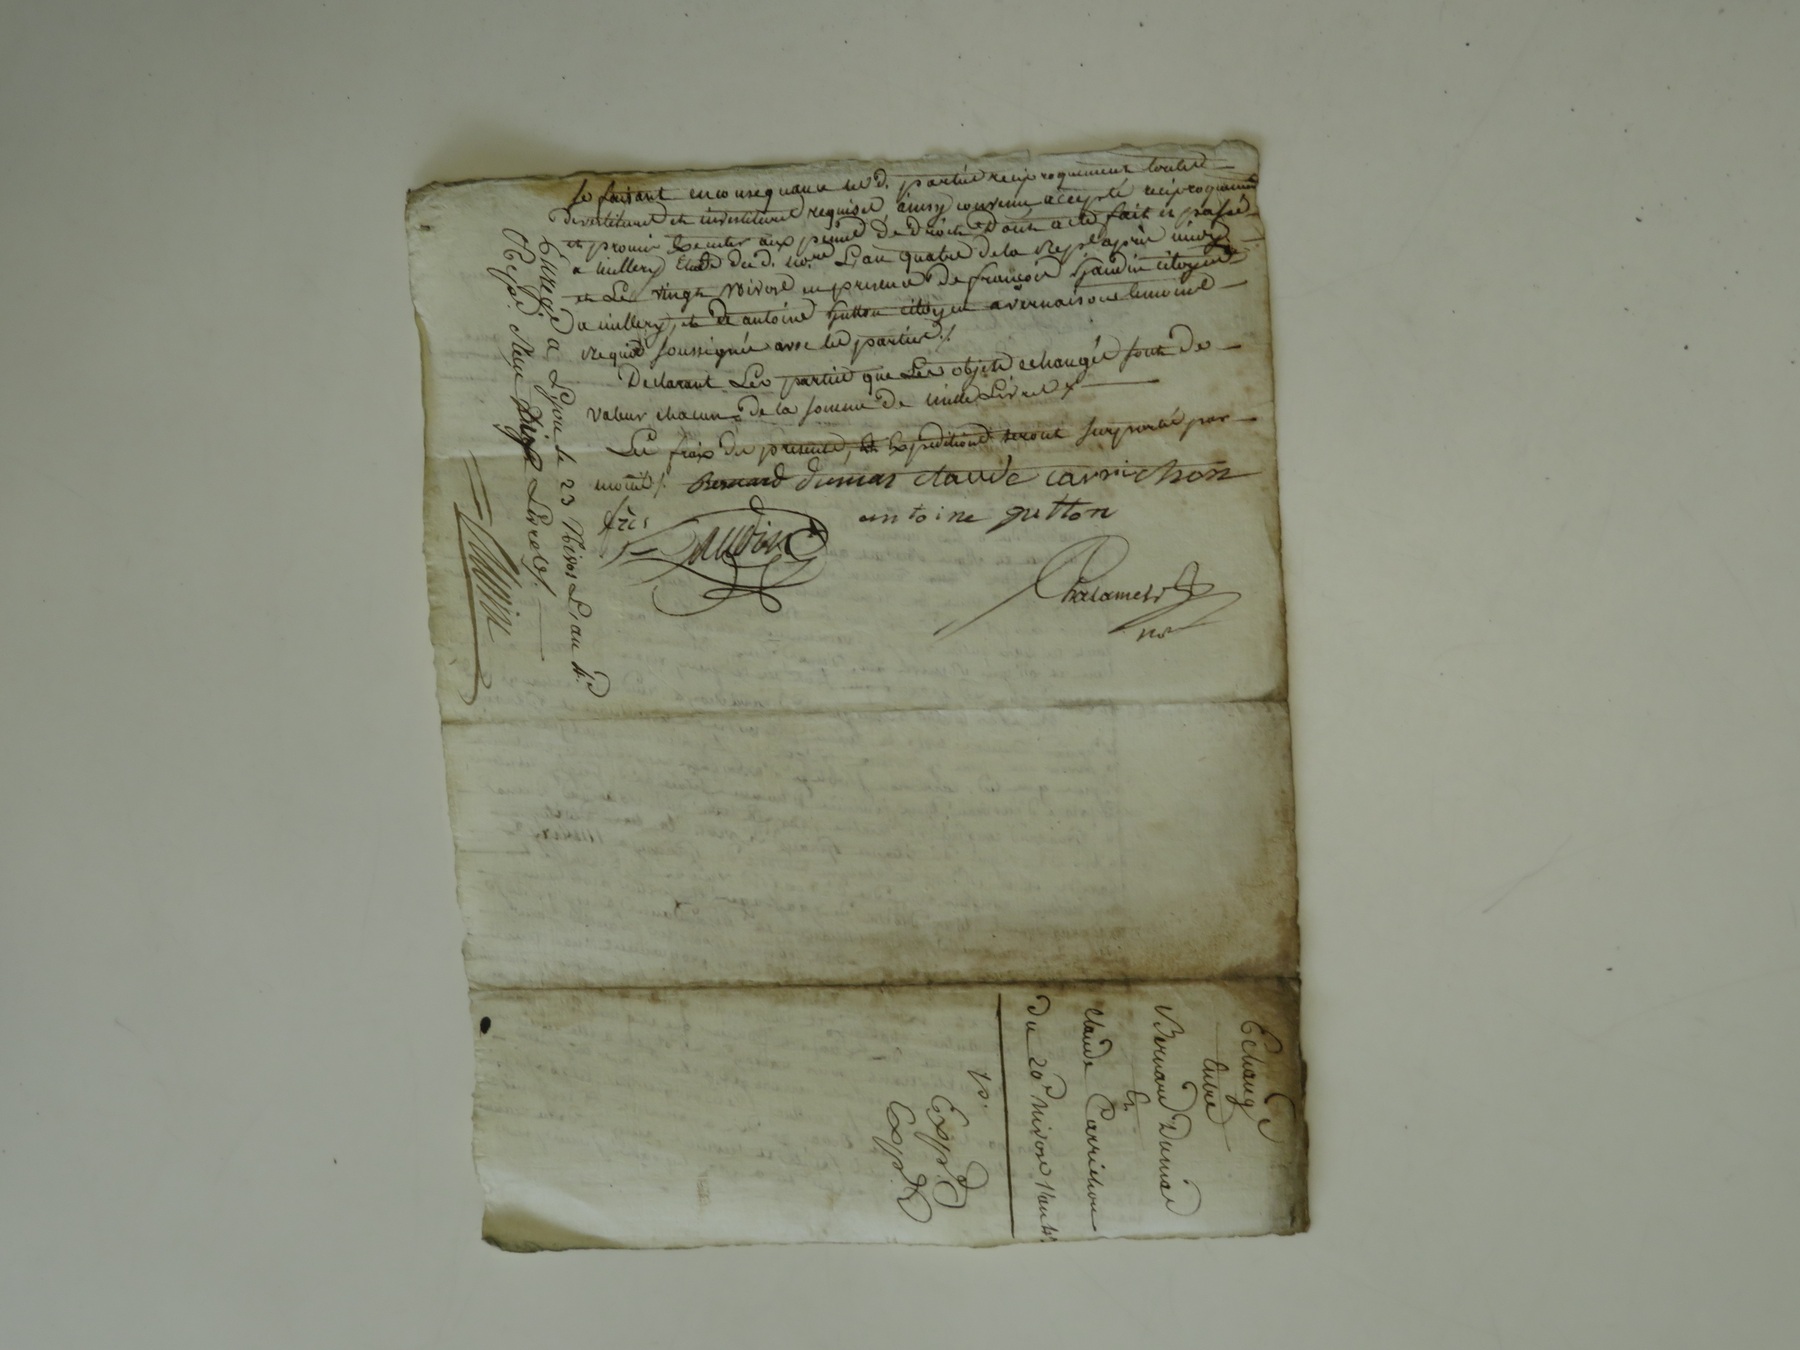 se faisant en consequence les d. parties reciproquement toutes
devestitures et investitures requises, ainsy convenu accepté reciproquement
et promis executer aux peines de droits Dont acte fait et passé
a millery Etude du d. no.re L'an quatre de la Rep.e après midy
et Le vingt Nivose en presence de françois Gaudin citoyen
de millery, et de antoine Gutton citoyen a vernaison temoins
requis soussignés avec les parties ./.
Declarant Les parties que Les objets echangés sont de
valeur chacun de la somme de mille Livres
Les frais des presentes, et Expeditions seront supportés par
moitié ./. Bernard dumas claude carrichon
fçois Gaudin antoine gutton
Chalamel
no.re
Enregé a Lyon le 23 Nivos L'an 4.e
Reçu Livres ./.
Echange
Entre
Bernard Dumas
Et
Claude Carrichon
Du 20 Nivose l'an 4.e
Exp.d
Exp.d